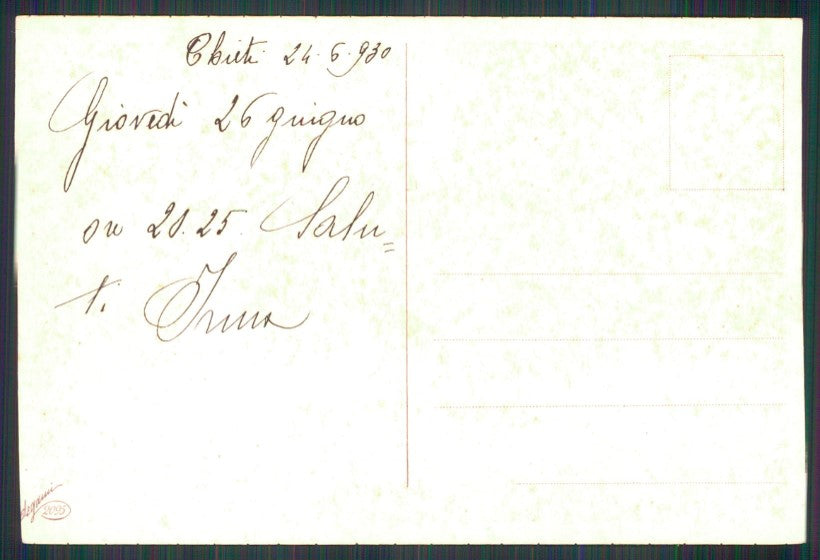 Chieti 24.6.930
Giovedì 26 giugno
ore 20.25. Salu=
ti Irma
Degami